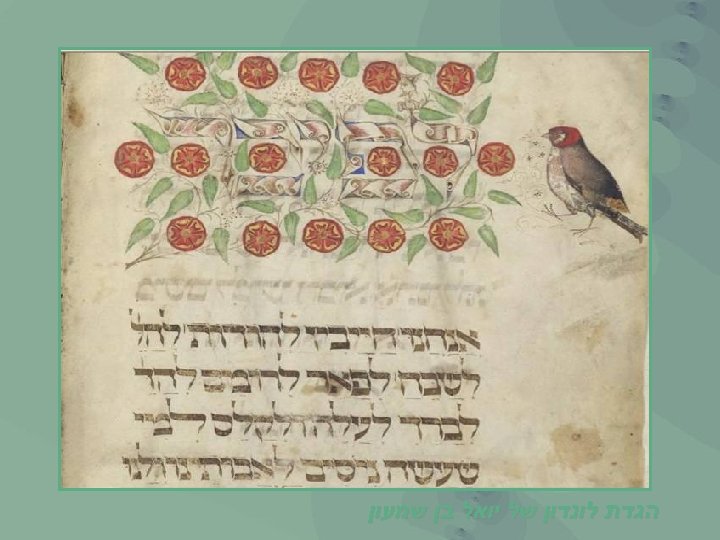 אנחנו חייבין להודות להל
לשבח לפאר לרומם להדר
לברך לעלה ולקלס למי
שעשה ניסים לאבותינו ולנו
הגדת לונדון של יואל בן שמעון